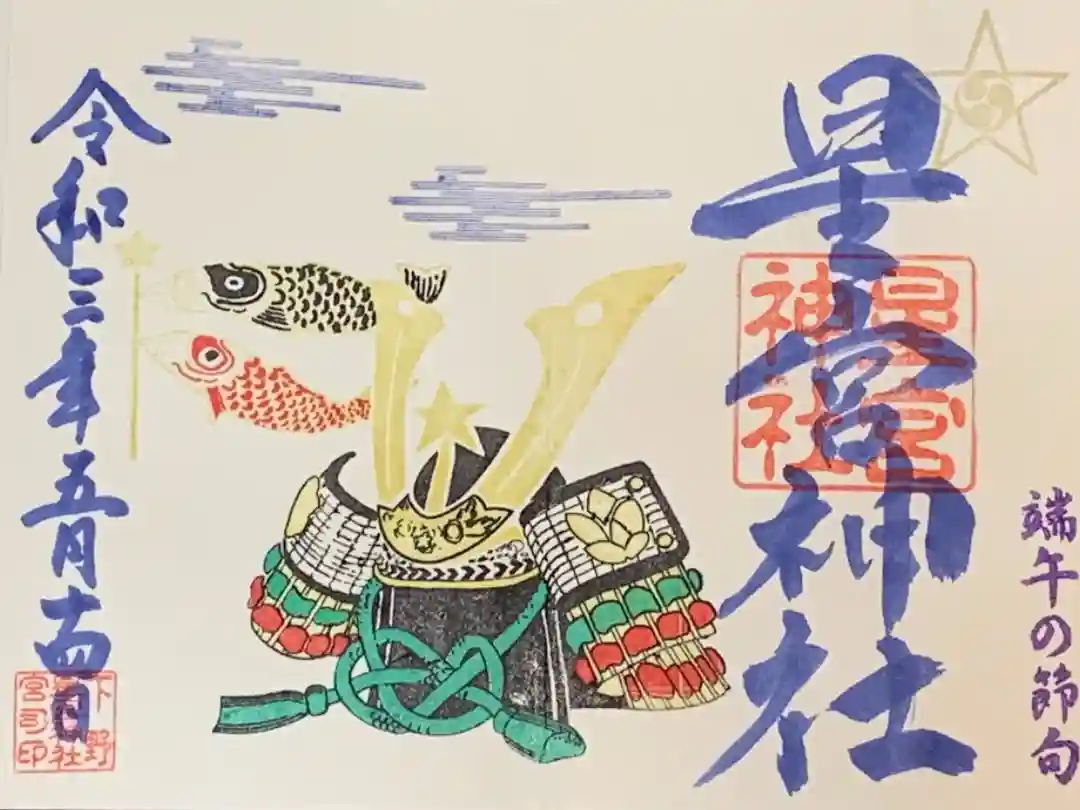 端午の節句
星宮神社
星宮
神社
令和三年五月十四日
下野
社
宮司印